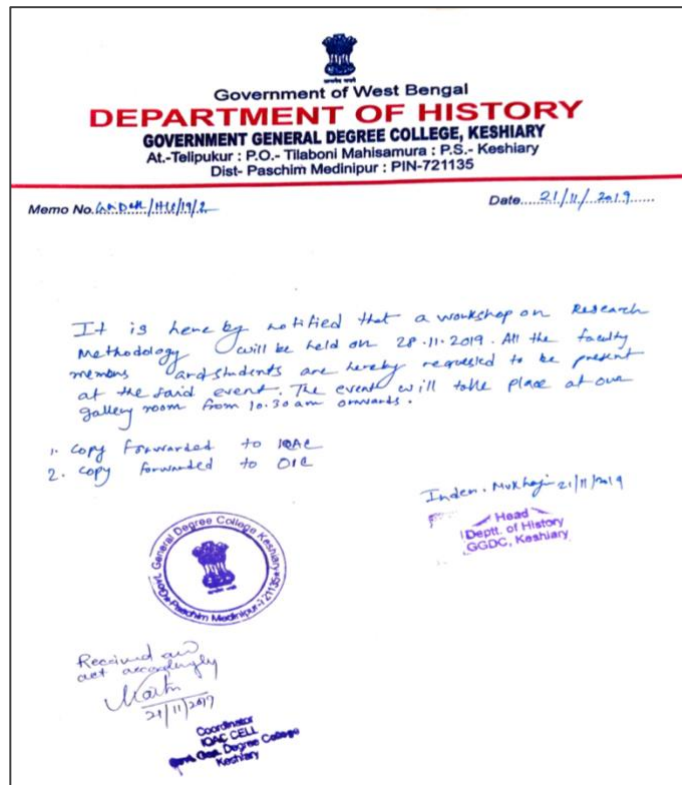 Government of West Bengal
DEPARTMENT OF HISTORY
GOVERNMENT GENERAL DEGREE COLLEGE, KESHIARY
At.-Telipukur : P.O.- Tilaboni Mahisamura : P.S.- Keshiary
Dist- Paschim Medinipur : PIN-721135
Memo No. /19/2 Date.....21/11/2019......
It is here by notified that a workshop on Research
Methodology will be held on 28.11.2019. All the faculty
members and students are hereby requested to be present
at the said event. The event will take place at our
gallery room from 10.30 am onwards.
1. Copy forwarded to IQAC
2. Copy forwarded to OIC
21/11/2019
Head
Deptt. of History
GGDC, Keshiary
Govt. General Degree College Keshiary
Paschim Medinipur-721135
Received and
act accordingly
21/11/2019
Coordinator
IQAC CELL
Govt. Gen. Degree College
Keshiary